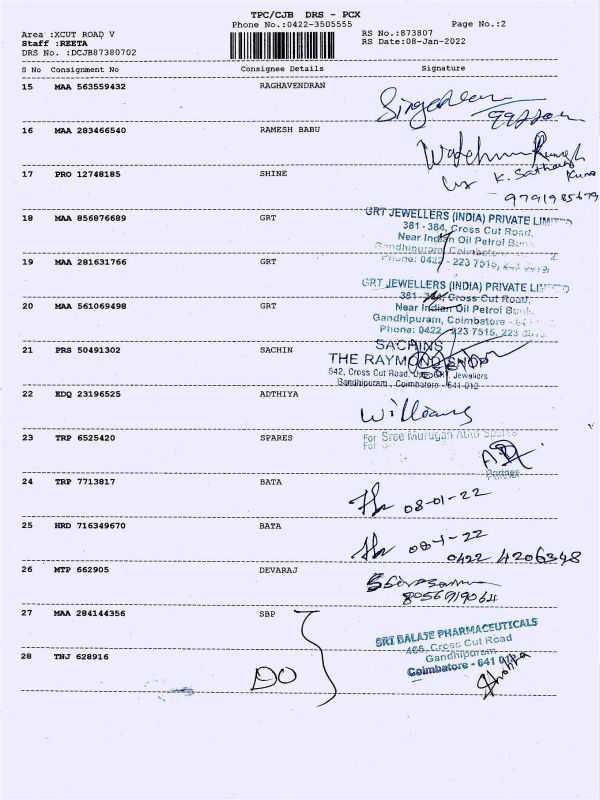 TPC/CJB DRS - PCX
Phone No.:0422-3505555 Page No.:2
Area :XCUT ROAD V RS No.:873807
Staff :REETA RS Date:08-Jan-2022
DRS No. :DCJB87380702
S No Consignment No Consignee Details Signature
15 MAA 563559432 RAGHAVENDRAN
16 MAA 283466540 RAMESH BABU
17 PRO 12748185 SHINE
K. Sathang Kuna
9791985679
18 MAA 856876689 GRT
GRT JEWELLERS (INDIA) PRIVATE LIMITED
381 - 384, Cross Cut Road,
Near Indian Oil Petrol Bunk
Gandhipuram, Coimbatore
Phone: 0422 - 223 7515,
19 MAA 281631766 GRT
GRT JEWELLERS (INDIA) PRIVATE LIMITED
381 - 384, Cross Cut Road,
20 MAA 561069498 GRT
Near Indian Oil Petrol Bunk
Gandhipuram, Coimbatore
Phone: 0422 - 223 7515,
21 PRS 50491302 SACHIN
SACHINS
THE RAYMOND SHOP
642, Cross Cut Road, Opp. GRT. Jewellers
Gandhipuram, Coimbatore - 641 012
22 EDQ 23196525 ADTHIYA
Williams
23 TRP 6525420 SPARES
For Sree Murugan Auto Spares
For
Partner
24 TRP 7713817 BATA
08-01-22
25 HRD 716349670 BATA
08-1-22
0422 4206348
26 MTP 662905 DEVARAJ
8056919064
27 MAA 284144356 SBP
SRI BALAJE PHARMACEUTICALS
466, Cross Cut Road
28 TNJ 628916
Gandhipuram
Coimbatore - 641 012
DO